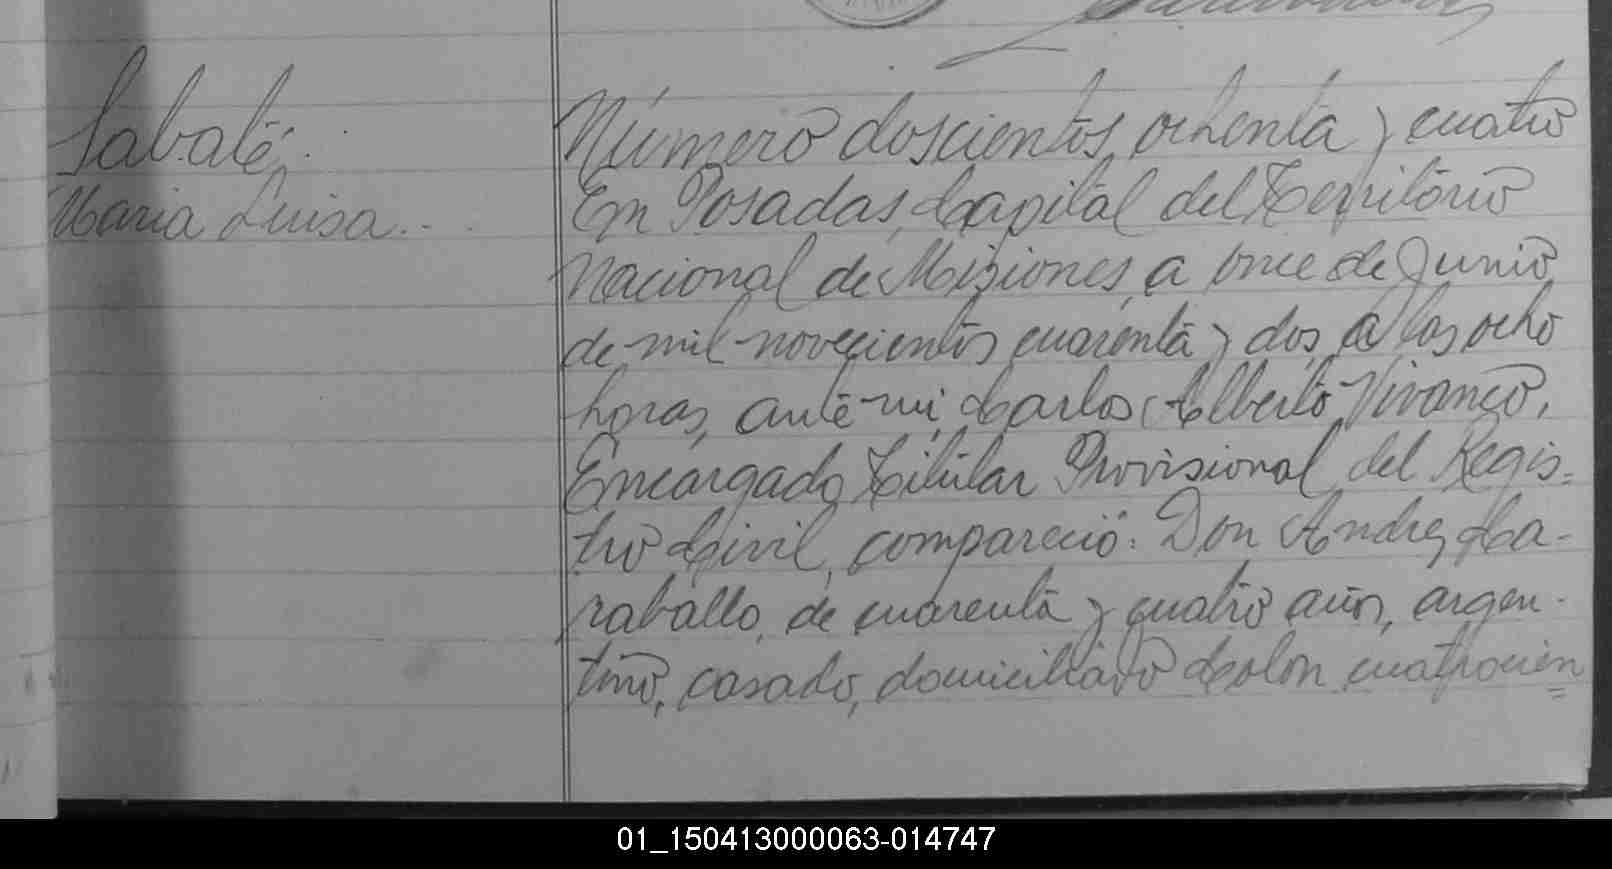 Sabaté.
Maria Luisa...
Número doscientos ochenta y cuatro
En Posadas, Capital del Territorio
Nacional de Misiones, a once de Junio
de mil novecientos cuarenta y dos, a las ocho
horas, ante mi, Carlos Alberto Vivanco,
Encargado Titular Provisional del Regis=
tro Civil, compareció: Don Andres Ca-
raballo, de cuarenta y cuatro años, argen-
tino, casado, domiciliado Colon cuatrocien=
01_150413000063-014747